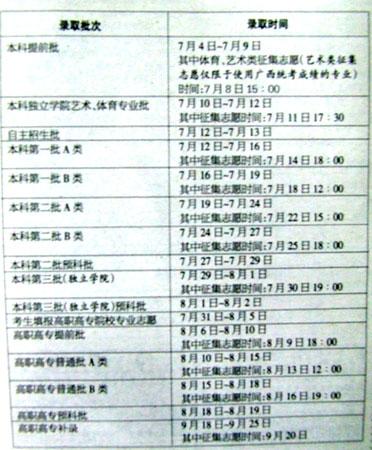 录取批次 录取时间
本科提前批 7月4日-7月9日
其中体育、艺术类征集志愿(艺术类征集
志愿仅限于使用广西统考成绩的专业)
时间:7月8日15:00
本科独立学院艺术、体育专业批 7月10日-7月12日
其中征集志愿时间:7月11日17:30
自主招生批 7月12日-7月13日
本科第一批A类 7月12日-7月16日
其中征集志愿时间:7月14日18:00
本科第一批B类 7月16日-7月19日
其中征集志愿时间:7月18日12:00
本科第二批A类 7月19日-7月24日
其中征集志愿时间:7月22日15:00
本科第二批B类 7月24日-7月27日
其中征集志愿时间:7月25日18:00
本科第二批预科批 7月27日-7月29日
本科第三批(独立学院) 7月29日-8月1日
其中征集志愿时间:7月30日19:00
本科第三批(独立学院)预科批 8月1日-8月2日
考生填报高职高专院校专业志愿 7月31日-8月5日
高职高专提前批 8月6日-8月10日
其中征集志愿时间:8月9日18:00
高职高专普通批A类 8月10日-8月15日
其中征集志愿时间:8月13日12:00
高职高专普通批B类 8月15日-8月18日
其中征集志愿时间:8月16日19:00
高职高专预科批 8月18日-8月19日
高职高专补录 9月18日-9月25日
其中征集志愿时间:9月20日